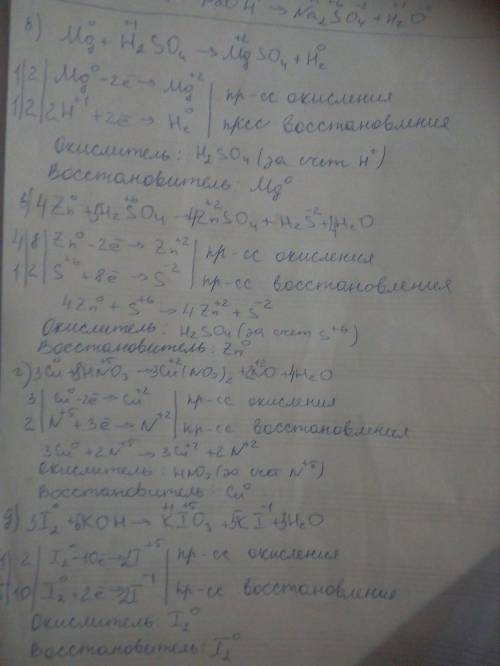 NaOH → Na₂SO₄ + H₂O
б) Mg⁰ + H₂⁺¹SO₄ → Mg⁺²SO₄ + H₂⁰
1|2| Mg⁰ - 2ē → Mg⁺² | пр-сс окисления
1|2| 2H⁺¹ + 2ē → H₂⁰ | прсс восстановления
Окислитель: H₂SO₄ (за счет H⁺)
Восстановитель: Mg⁰
в) 4Zn⁰ + 5H₂S⁺⁶O₄ → 4Zn⁺²SO₄ + H₂S⁻² + 4H₂O
4|8| Zn⁰ - 2ē → Zn⁺² | пр-сс окисления
1|2| S⁺⁶ + 8ē → S⁻² | пр-сс восстановления
4Zn⁰ + S⁺⁶ → 4Zn⁺² + S⁻²
Окислитель: H₂SO₄ (за счет S⁺⁶)
Восстановитель: Zn⁰
г) 3Cu⁰ + 8HN⁺⁵O₃ → 3Cu⁺²(NO₃)₂ + 2N⁺²O + 4H₂O
3| Cu⁰ - 2ē → Cu⁺² | пр-сс окисления
2| N⁺⁵ + 3ē → N⁺² | пр-сс восстановления
3Cu⁰ + 2N⁺⁵ → 3Cu⁺² + 2N⁺²
Окислитель: HNO₃ (за счет N⁺⁵)
Восстановитель: Cu⁰
д) 3I₂⁰ + 6KOH → K⁺¹I⁺⁵O₃ + 5KI⁻¹ + 3H₂O
1|2| I₂⁰ - 10ē → 2I⁺⁵ | пр-сс окисления
5|10| I₂⁰ + 2ē → 2I⁻¹ | пр-сс восстановления
Окислитель: I₂⁰
Восстановитель: I₂⁰